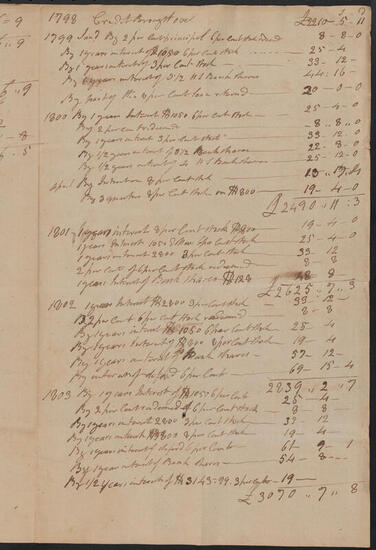 1798 Credit Brought over £2210 - 5 - 11
1799 Jany By 2 per Cent principal 6 per Cent redeemed 8 - 8 - 0
By 1 years interest of 1050 6 per Cent Stock 25 - 4
By 1 years interest 3 per Cent Stock 33 - 12
By years interest of Bank Shares 44 : 16
By part of the 8 per Cent loan 20 - 0 - 0
1800 By 1 years Interest 1050 6 per Cent Stock 25 - 4 - 0
By 2 per Cent redeemed 8 - 8 - 0
By 1 years interest 3 per Cent Stock 33 - 12 - 0
By 1/2 years interest of Bank Shares 22 - 8 - 0
By 1/2 years interest of Bank Shares 25 - 12 - 0
April By 8 per Cent Stock
By 3 quarters 8 per Cent Stock on 800 19 - 4 - 0
£2490 " 11 : 3
1801 1 years interest 8 per Cent Stock 800 19 - 4 - 0
1 years Interest 1050 6 per Cent Stock 25 - 4 - 0
1 years interest 2800 3 per Cent Stock 33 - 12
2 per Cent of 6 per Cent Stock redeemed 8 - 8
1 years interest of Bank Shares 48 - 8
£2625 " 7 " 3
1802 1 years Interest 2800 3 per Cent Stock 33 - 12
2 per Cent 6 per Cent Stock redeemed 8 - 8
By 1 years interest 1050 6 per Cent Stock 25 - 4
By 1 years Interest of 800 8 per Cent Stock 19 - 4
By 1 years interest of Bank Shares 57 - 12
By interest of deferd 6 per Cent 69 - 15 - 4
2839 " 2 " 7
1803 By 1 years Interest of 1050 6 per Cents 25 - 4
By 2 per Cent redeemed of 6 per Cent Stock 8 - 8
By 1 years interest 2800 3 per Cent Stock 33 - 12
By 1 years interest 800 8 per Cent Stock 19 - 4
By 1 years interest of deferd 6 per Cents 61 - 9 - 1
By 1 years interest of Bank Shares 54 - 8
By 1/2 years interest of 3143 - 99 3 per Cts 19
£3070 " 7 " 8